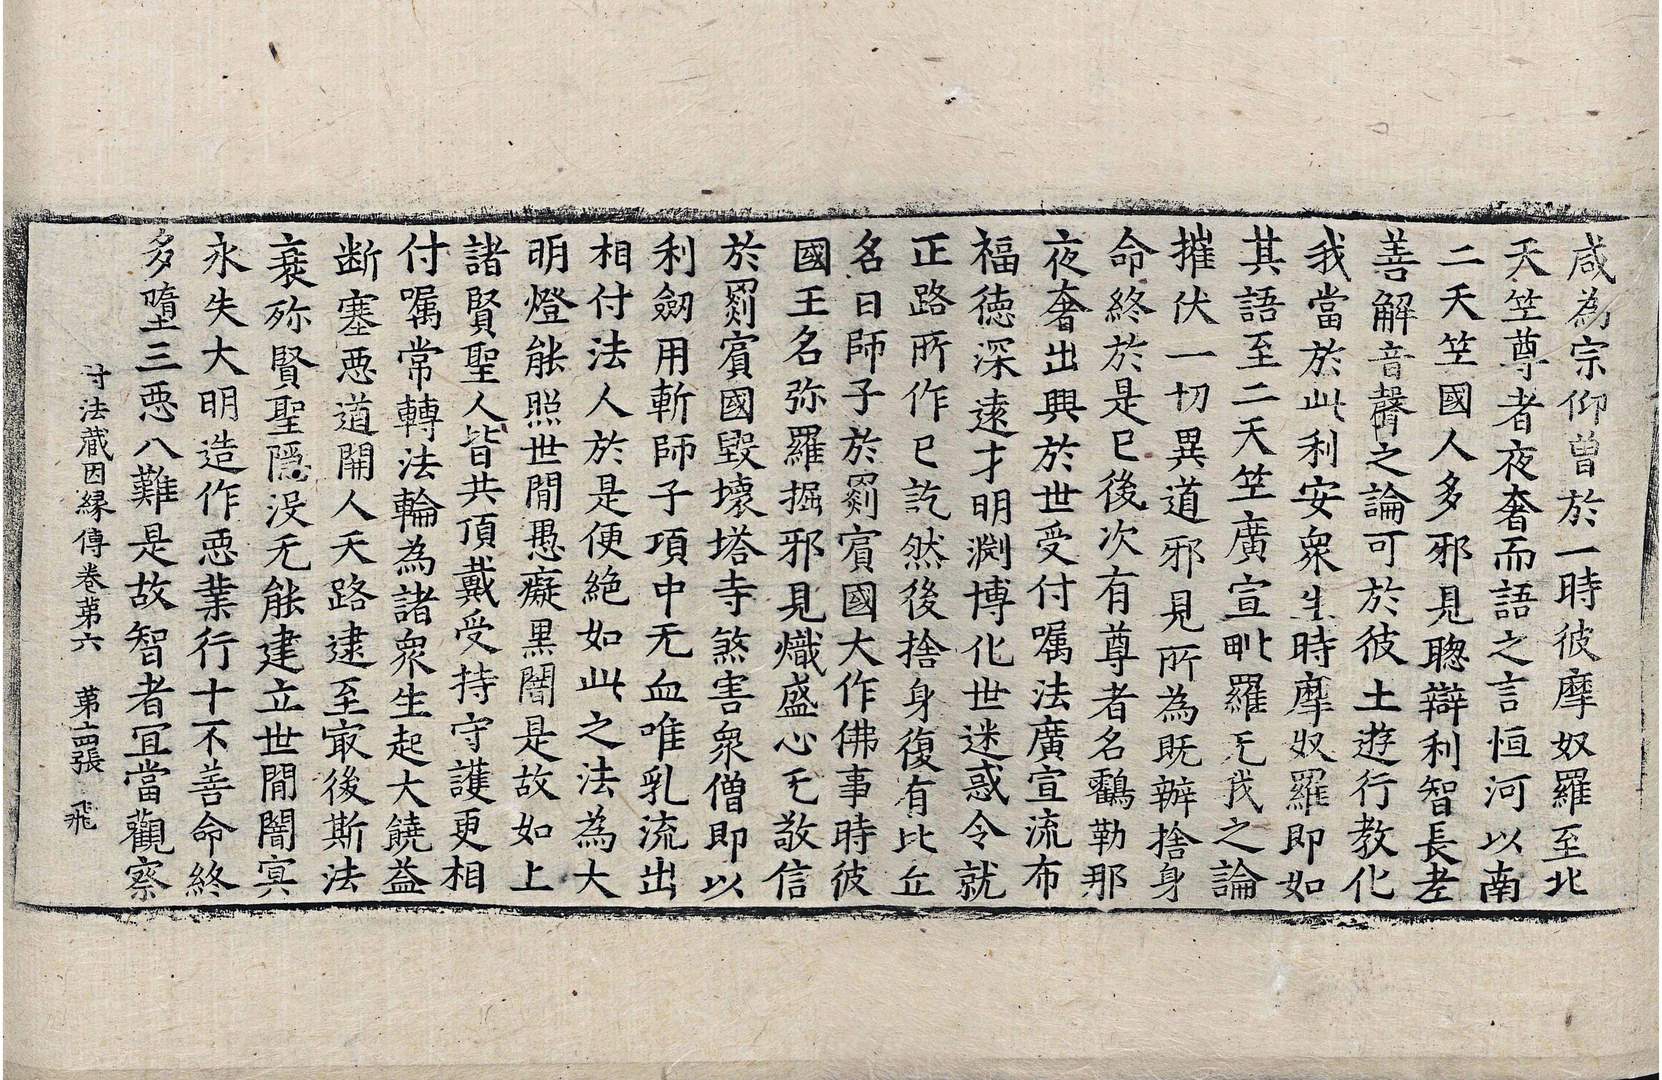 咸為宗仰曽於一時彼摩奴羅至北
天笁尊者夜奢而語之言恒河以南
二天笁國人多邪見聦辯利智長老
善解音聲之論可於彼土遊行教化
我當於此利安衆生時摩奴羅即如
其語至二天笁廣宣毗羅无我之論
摧伏一切異道邪見所為既辦捨身
命終於是已後次有尊者名鸖勒那
夜奢出興於世受付嘱法廣宣流布
福徳深逺才明渕博化世迷惑令就
正路所作已訖然後捨身復有比丘
名曰師子於罽賔國大作佛事時彼
國王名弥羅掘邪見熾盛心无敬信
於罽賔國毀壞塔寺煞害衆僧即以
利劒用斬師子項中无血唯乳流出
相付法人於是便絶如此之法為大
明燈能照世閒愚癡黒闇是故如上
諸賢聖人皆共頂戴受持守護更相
付嘱常轉法輪為諸衆生起大饒益
断塞惡道開人天路逮至㝡後斯法
衰殄賢聖隠没无能建立世閒闇㝠
永失大明造作惡業行十不善命終
多墮三惡八難是故智者冝當觀察
付法藏因縁傳卷苐六 苐十四張 飛